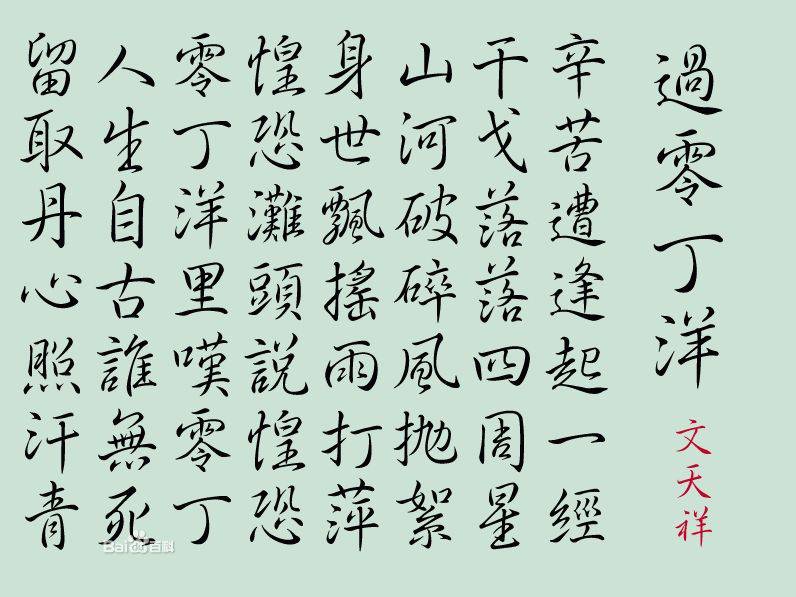 過零丁洋
文天祥
辛苦遭逢起一經
干戈落落四周星
山河破碎風拋絮
身世飄搖雨打萍
惶恐灘頭說惶恐
零丁洋里嘆零丁
人生自古誰無死
留取丹心照汗青
Bai百科